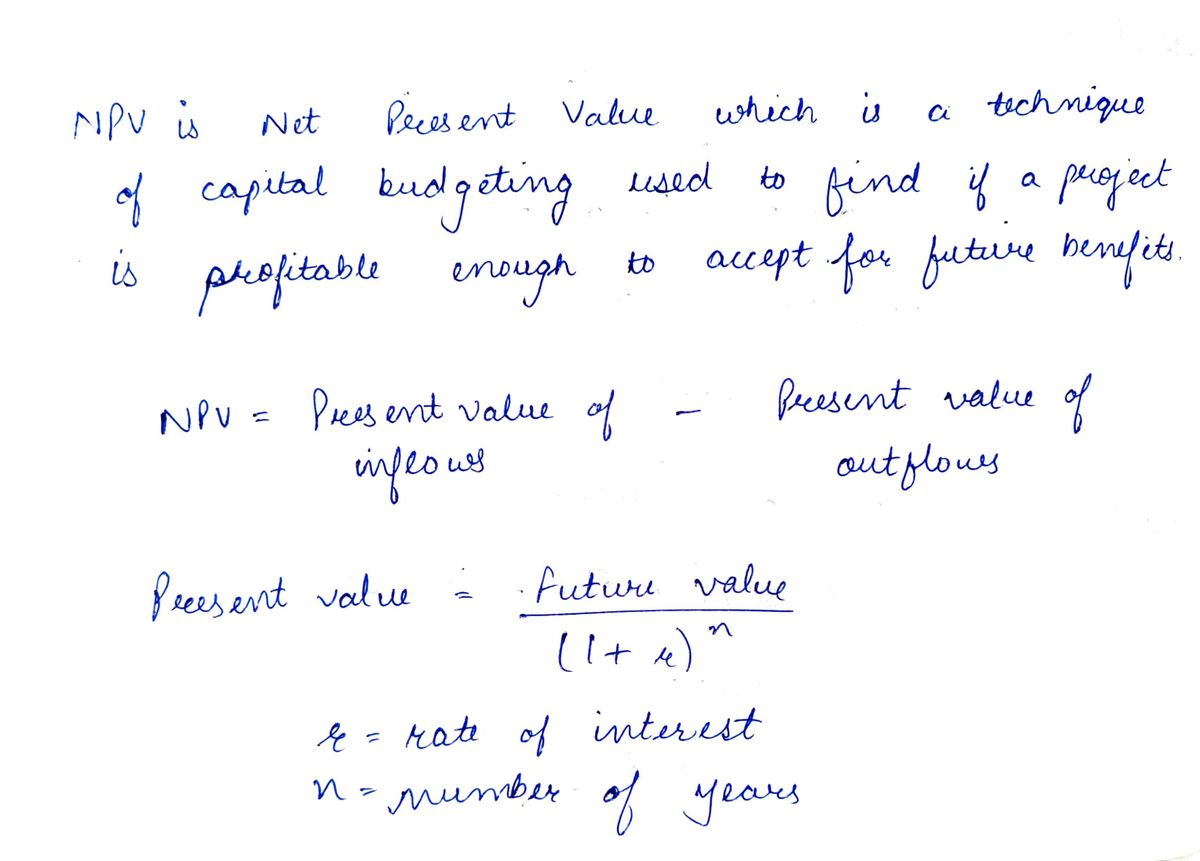 NPV is Net Present Value which is a technique
of capital budgeting used to find if a project
is profitable enough to accept for future benefits.
NPV = Present value of - Present value of
inflows outflows
Present value = future value
(1 + r)^n
r = rate of interest
n = number of years